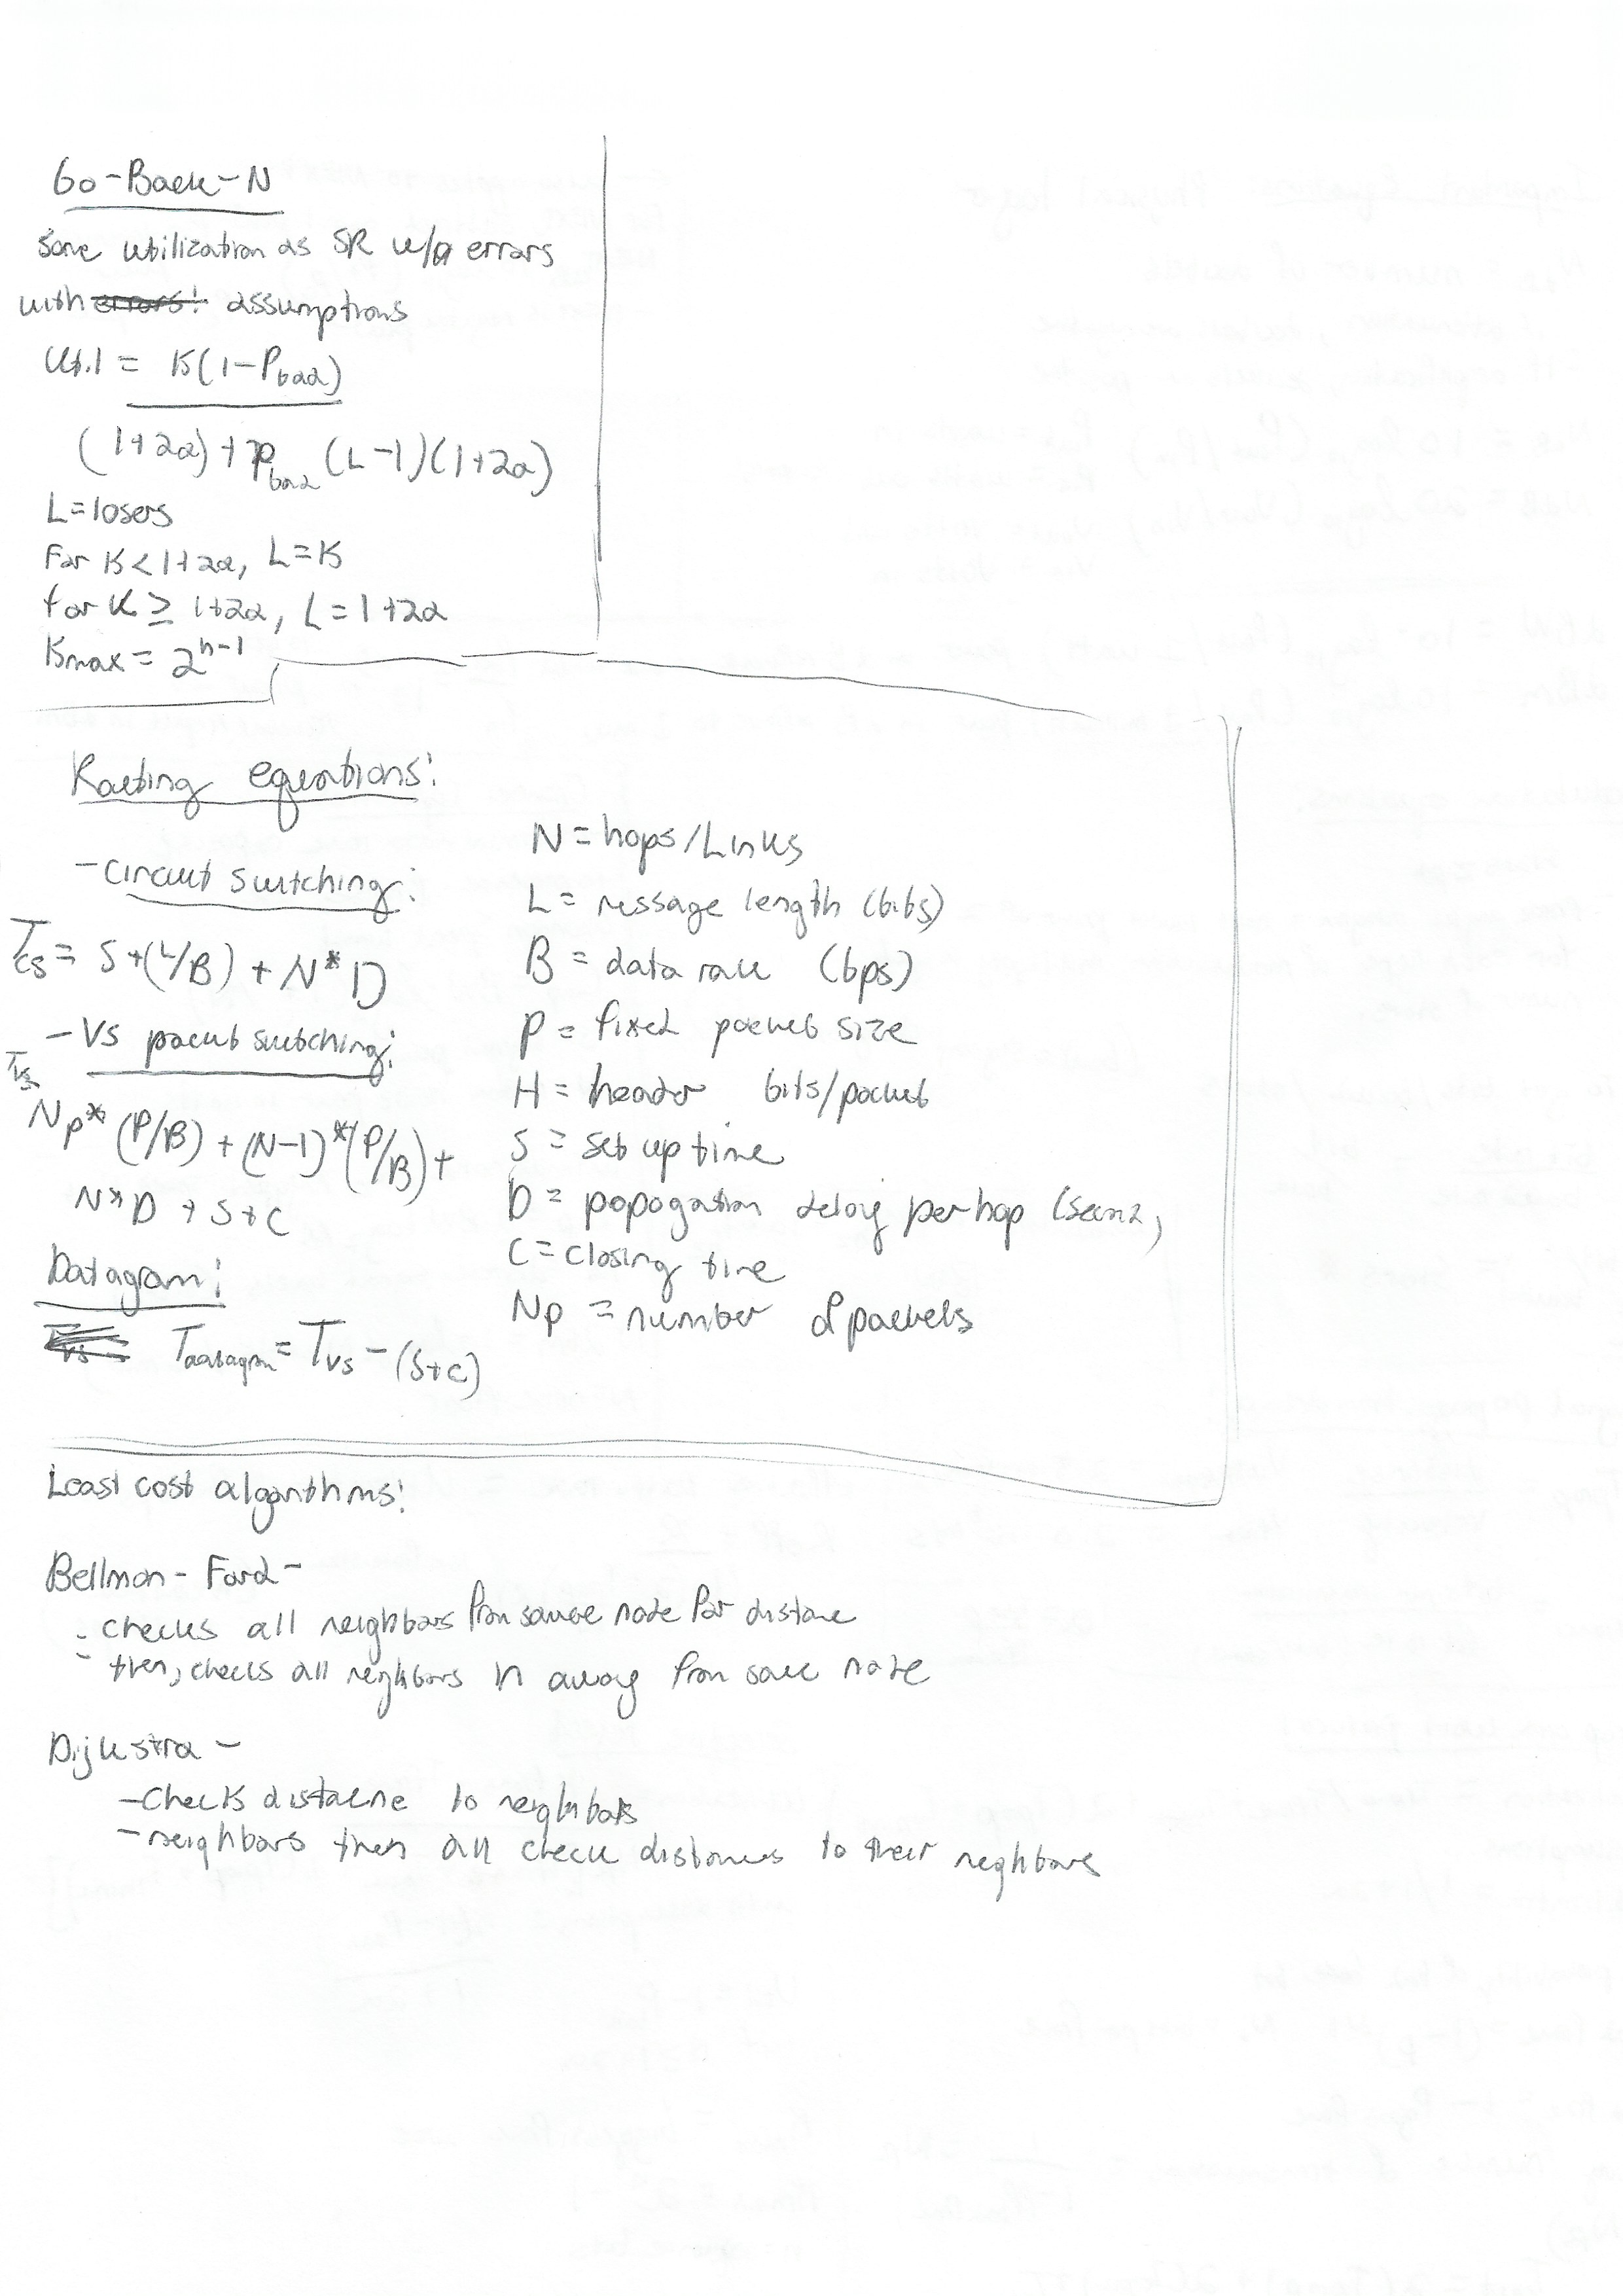 Go-Back-N
Same utilization as SR w/o errors
with errors! assumptions
Util = K(1-Pbad)
(1+2a)+Pbad (L-1)(1+2a)
L=losers
For K<1+2a, L=K
for K ≥ 1+2a, L=1+2a
Kmax = 2^n-1
Routing equations:
-circuit switching:
Tcs = S+(L/B) + N*D
-VS packet switching:
Tvs
Np*(P/B)+(N-1)*(P/B)+
N*D + S+C
Datagram:
Tvs Tdatagram = Tvs - (S+C)
N = hops/Links
L = message length (bits)
B = data rate (bps)
P = fixed packet size
H = header bits/packet
S = set up time
D = popogation delay per hop
C = closing time
Np = number of packets
Least cost algorithms:
Bellman-Ford-
- checks all neighbors from source node for distance
- then, checks all neighbors n away from source node
Dijkstra -
-Checks distacne to neighbors
-neighbors then all check distances to their neghbors